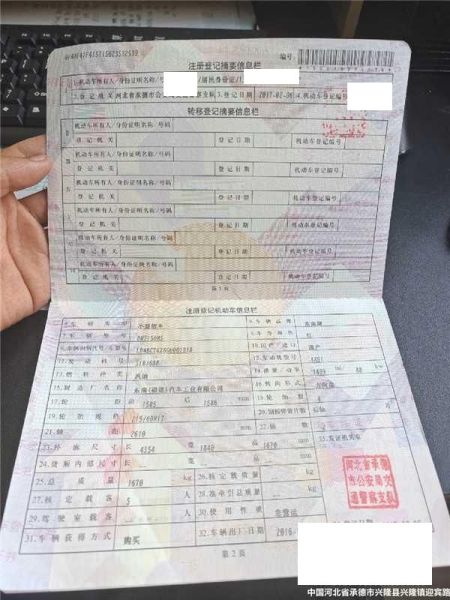 注册登记摘要信息栏
编号:
1.机动车所有人/身份证明名称/号码 /居民身份证/
2.登记机关 河北省承德市公 交通警察支队 3.登记日期 2017-02-06 4.机动车登记编号
转移登记摘要信息栏
机动车所有人/身份证明名称/号码
登记机关 登记日期 机动车登记编号
机动车所有人/身份证明名称/号码
登记机关 登记日期 机动车登记编号
机动车所有人/身份证明名称/号码
登记机关 登记日期 机动车登记编号
机动车所有人/身份证明名称/号码
登记机关 登记日期 机动车登记编号
机动车所有人/身份证明名称/号码
登记机关 登记日期 机动车登记编号
第1页
注册登记机动车信息栏
5.车辆类型 6.车辆品牌
7.车辆型号 8.车身颜色
9.车辆识别代号/车架号 10.国产/进口 国产
11.发动机号 12.发动机型号
13.燃料种类 汽油 14.排量/功率
15.制造厂名称 东南(福建)汽车工业有限公司 16.转向形式
17.轮距 前 后 18.轮胎数
19.轮胎规格 215/60R17 20.钢板弹簧片数
21.轴距 2610 22.轴数
23.外廓尺寸 长 4354 宽 1840 高 1670 33.发证机关章
24.货厢内部尺寸 长 宽 高
25.总质量 1670 kg 26.核定载质量 kg
27.核定载客 5 人 28.准牵引总质量 kg
29.驾驶室载客 人 30.使用性质 非营运
31.车辆获得方式 购买 32.车辆出厂日期 2016-
河北省承德
市公安局交
通警察支队
34.发证日期
第2页
中国河北省承德市兴隆县兴隆镇迎宾路